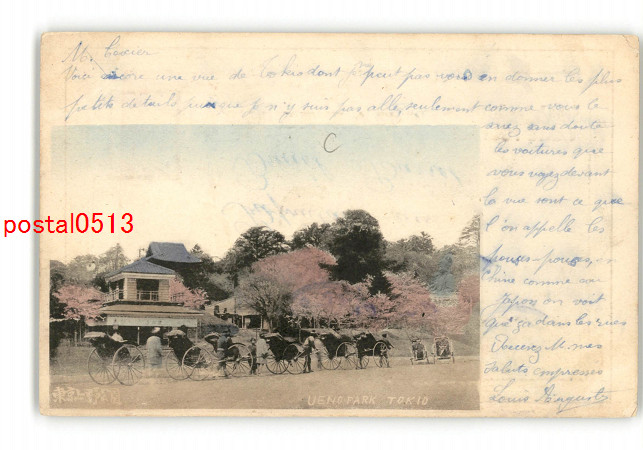 M. Texier
Voici encore une vue de Tokio dont je peut pas vous en donner les plus
petits détails puisque je n'y suis pas allé, seulement comme vous le
verrez sans doute
les voitures que
vous voyez devant
la vue sont ce que
l'on appelle les
pousse-pousse, en
Chine comme au
Japon on voit
que ça dans les rues
Recevez M. mes
saluts empressés
Louis Auguste
C
postal0513
UENO PARK TOKIO